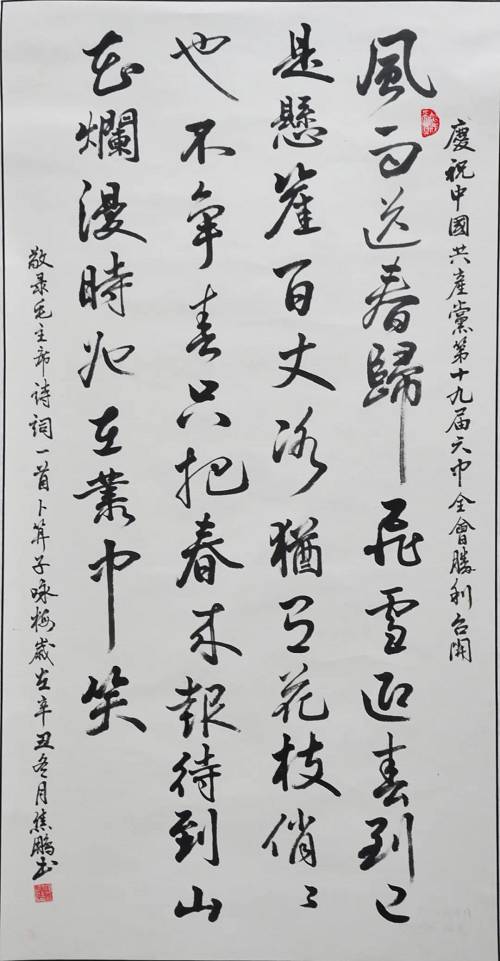 慶祝中國共產黨第十九届六中全會勝利召開
風雨送春歸飛雪迎春到已
是懸崖百丈冰猶有花枝俏〻
也不爭春只把春来報待到山
花爛漫時她在叢中笑
敬录毛主席詩詞一首卜算子咏梅歲在辛丑冬月焦鵬书